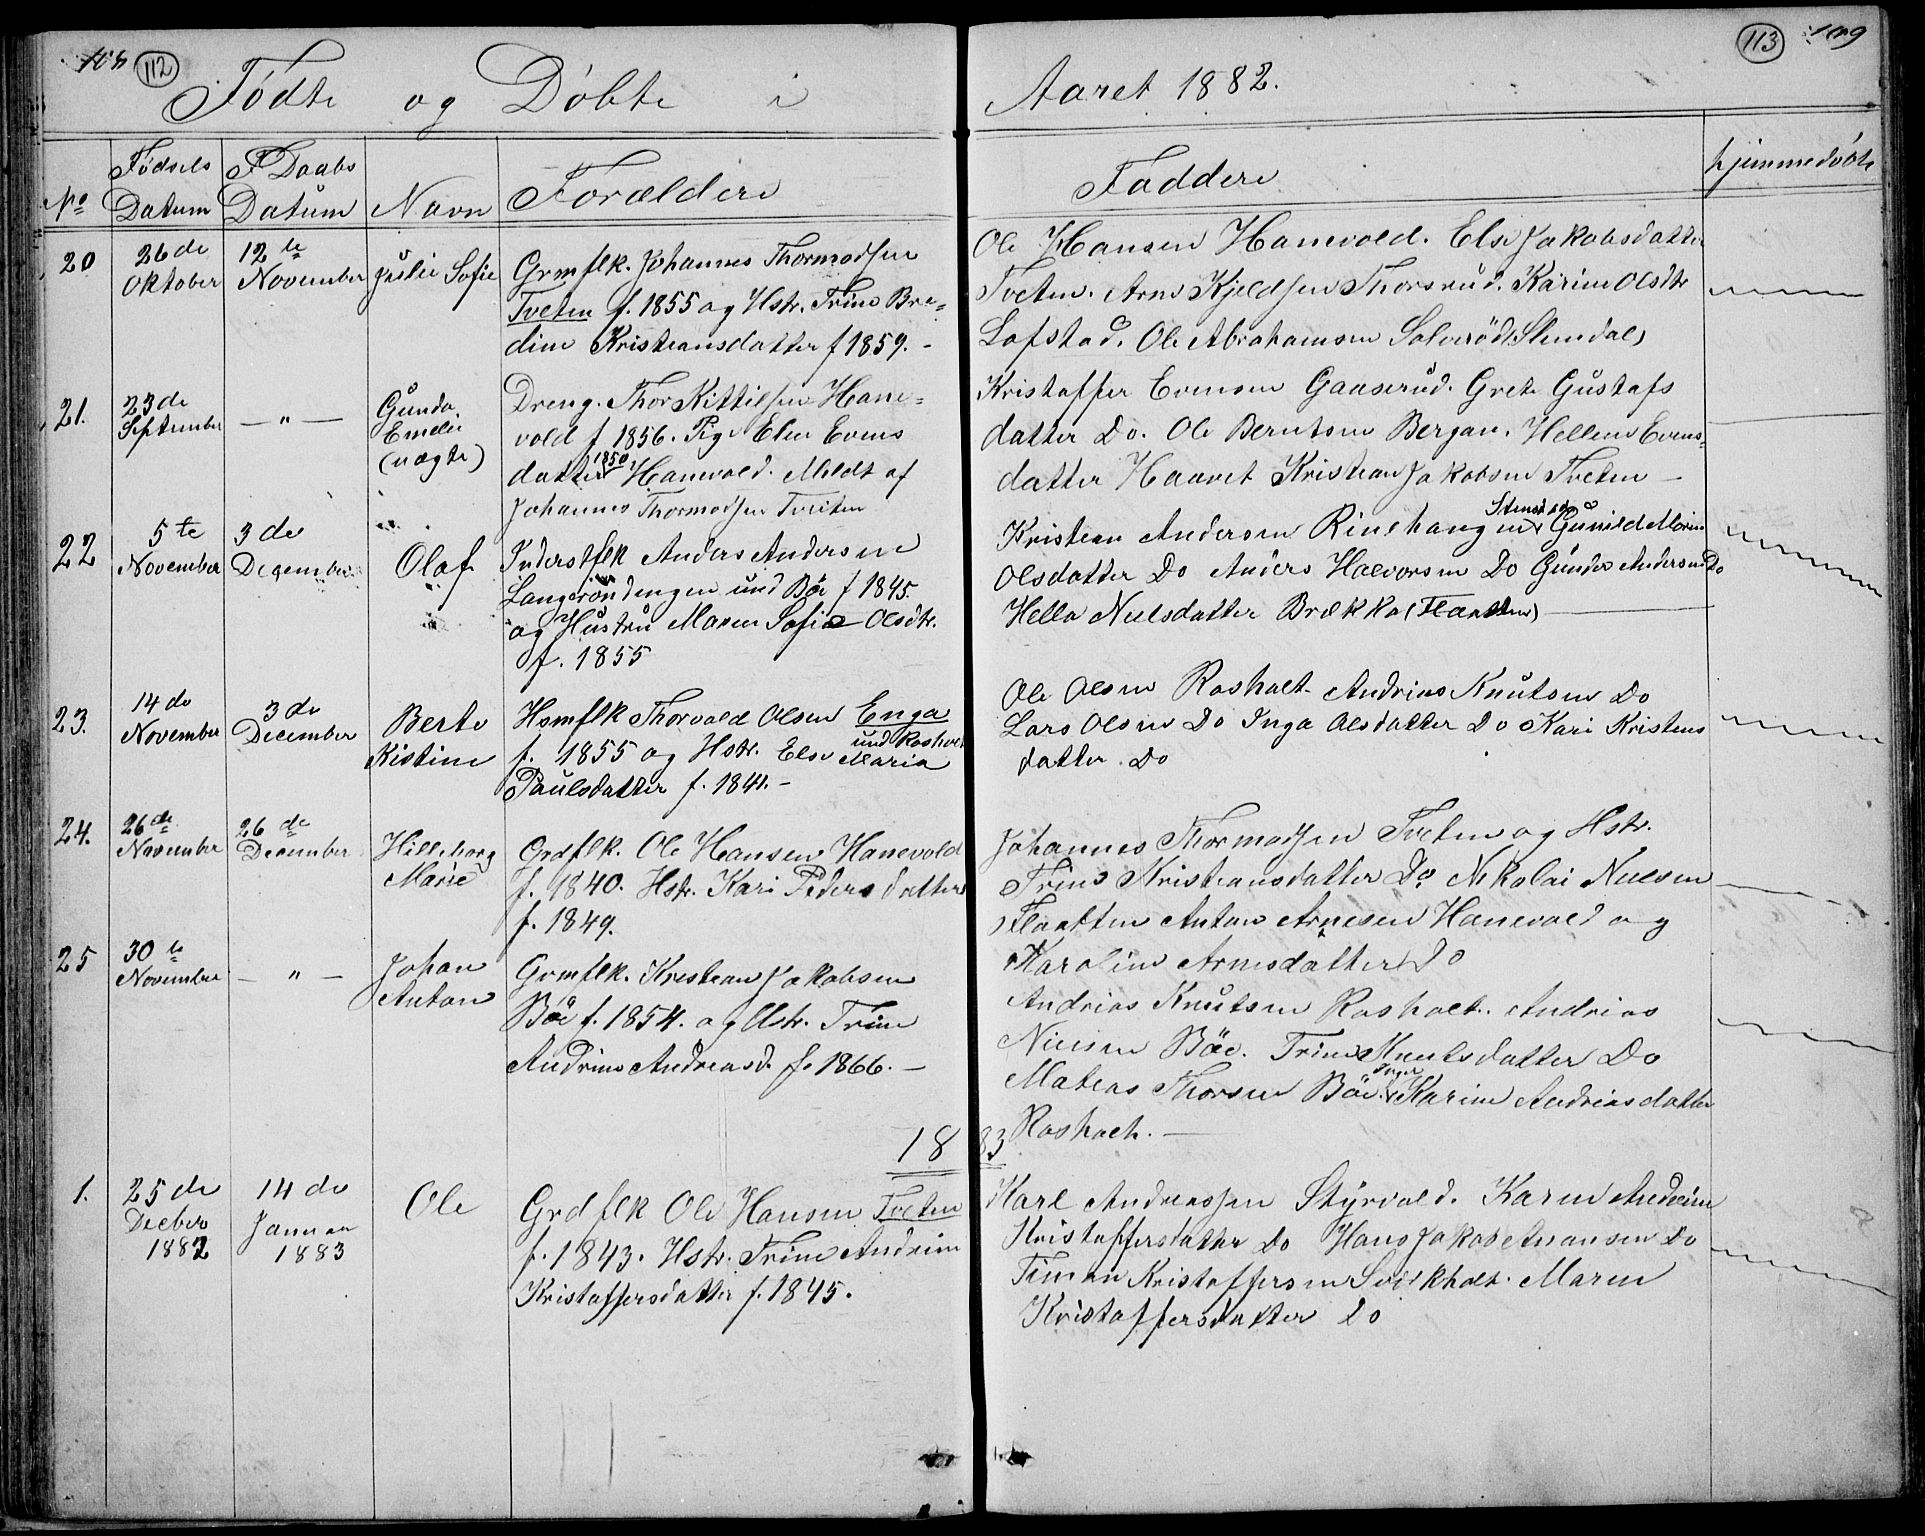 112
113
109
Fødte og Døbte i Aaret 1882.
No
Fødsels Datum
Daabs Datum
Navn
Forældere
Faddere
hjemmedøbt
20
26de Oktober
12te November
Julie Sofie
Grmflk. Johannes Thormodsen
Tveten f. 1855 og Hstr. Trine Bre-
dine Kristiansdatter f 1859. -
Ole Hansen Hanevold. Else Jakobsdatter
Tveten. Arne Kjeldsen Thorsrud. Karine Olsdtr
Lofstad. Ole Abrahamsen Solverød (Slemdal)
21.
23de September
— " —
Gunda Emelie (uægte)
Dreng. Thor Kittilsen Hane-
vold f 1856. Pige Elen Evens
datter 1850 Hanevold. Meldt af
Johannes Thormodsen Tveiten
Kristoffer Evensen Gaaserud. Grete Gustafs
datter Do. Ole Berntsen Bergan. Hellene Evens-
datter Haavet Kristian Jakobsen Tveten —
22
5te November
3de December
Olaf
Inderstflk Anders Andersen
Langerøndingen und Böe f 1845.
og Hustru Maren Sofie Olsdtr.
f. 1855
Kristian Andersen
Gunild Marie
Olsdatter Do Anders Halvorsen Do Gunder Andersen Do
Hella Nielsdatter Brække (Flaatten) —
23.
14de November
3de December
Berte Kistine
Hsmflk Thorvald Olsen Enga
und Rasholt
f. 1855 og Hstr. Else Maria
Paulsdatter f. 1841. -
Ole Olsen Rasholt. Andrias Knutsen Do
Lars Olsen Do Inga Olsdatter Do Kari Kristens
datter Do
24.
26de November
26de December
Hilleborg Marie
Grdflk. Ole Hansen Hanevold
f. 1840. Hstr. Kari Pedersdatter
f. 1849.
Johannes Thormodsen Tveten og Hstr.
Trine Kristiansdatter Do Nikolai Nielsen
Flaatten Anton Arnesen Hanevold og
Karoline Arnesdatter Do
25
30te November
— " —
Johan Anton
Grmflk. Kristian Jakobsen
Böe f. 1854. og Hstr. Trine
Andrine Andreasd. f. 1866. —
Andrias Knutsen Rasholt. Andrias
Nielsen Böe. Trine Knutsdatter Do
Matias Thorsen Böe. Inger Karine Andriasdatter
Rasholt. —
1883
1.
25de Decbr 1882
14de Januar 1883
Ole
Grdflk Ole Hansen Tveten
f. 1843. Hstr. Trine Andrine
Kristoffersdatter f. 1845.
Karl Andreassen Styrvold. Karen Andrine
Kristoffersdatter Do Hans Jakob Do
Timan Kristoffersen Maren
Kristoffersdatter Do